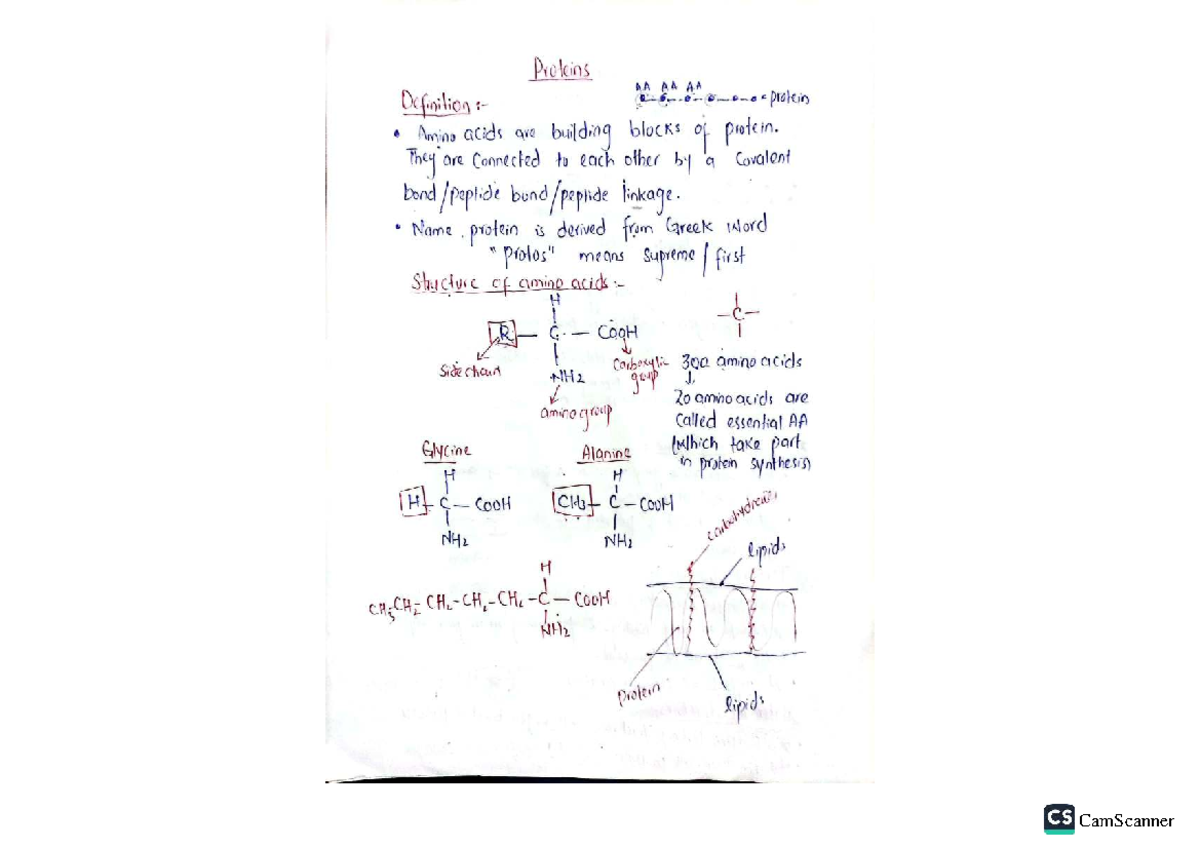 Proteins
AA AA AA
= protein
Definition :-
• Amino acids are building blocks of protein.
They are connected to each other by a covalent
bond/peptide bond/peptide linkage.
• Name protein is derived from Greek word
"protos" means supreme / first
Structure of amino acids :-
H
R — C — COOH
NH2
Side chain
Carboxylic
group
amino group
— C —
300 amino acids
↓
20 amino acids are
called essential AA
(which take part
in protein synthesis)
Glycine
H
H — C — COOH
NH2
Alanine
H
CH3 — C — COOH
NH2
H
CH3 CH2 – CH2 – CH2 – CH2 – C — COOH
NH2
carbohydrates
lipids
protein
lipids
CS CamScanner